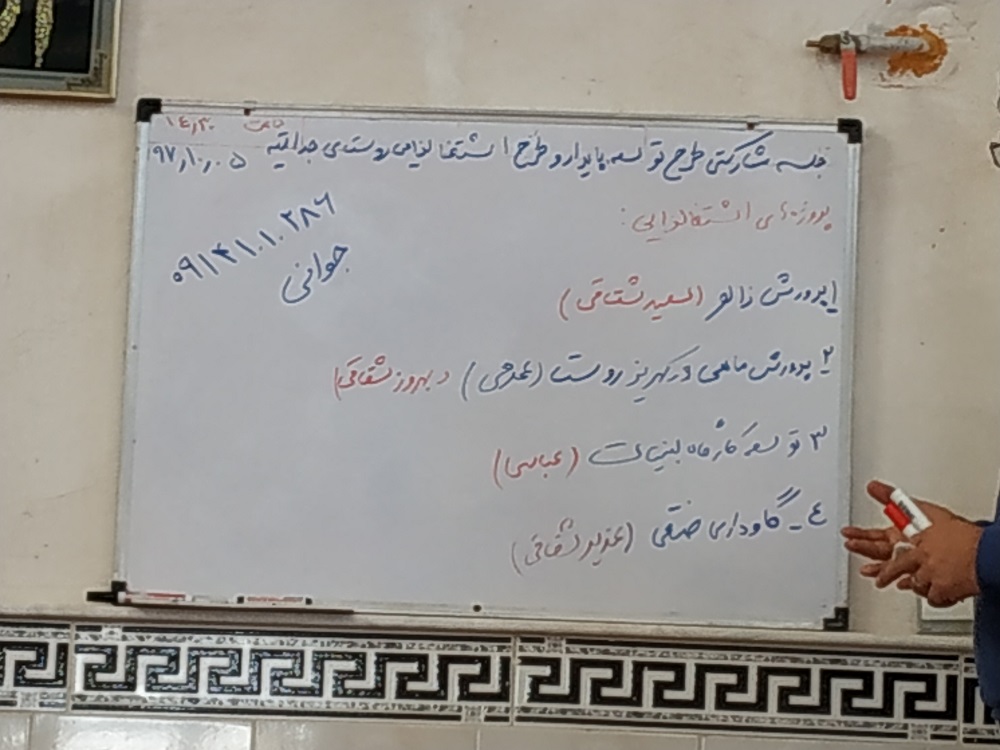 ساعت ۱۴٫۳۰
جلسه مشارکتی طرح توسعه پایدار و طرح اشتغالزایی روستای
۹۷٫۱۰٫۰۵
پروژه‌های اشتغالزایی:
۰۹۱۴۱۰۱۰۲۸۶
جوانی
۱ پرورش زالو (سعید شقاقی)
۲ پرورش ماهی در کهریز روستا ( ) و بهروز شقاقی
۳ توسعه کارگاه لبنیات (عباسی)
٤ـ گاوداری صنعتی (عزیر شقاقی)